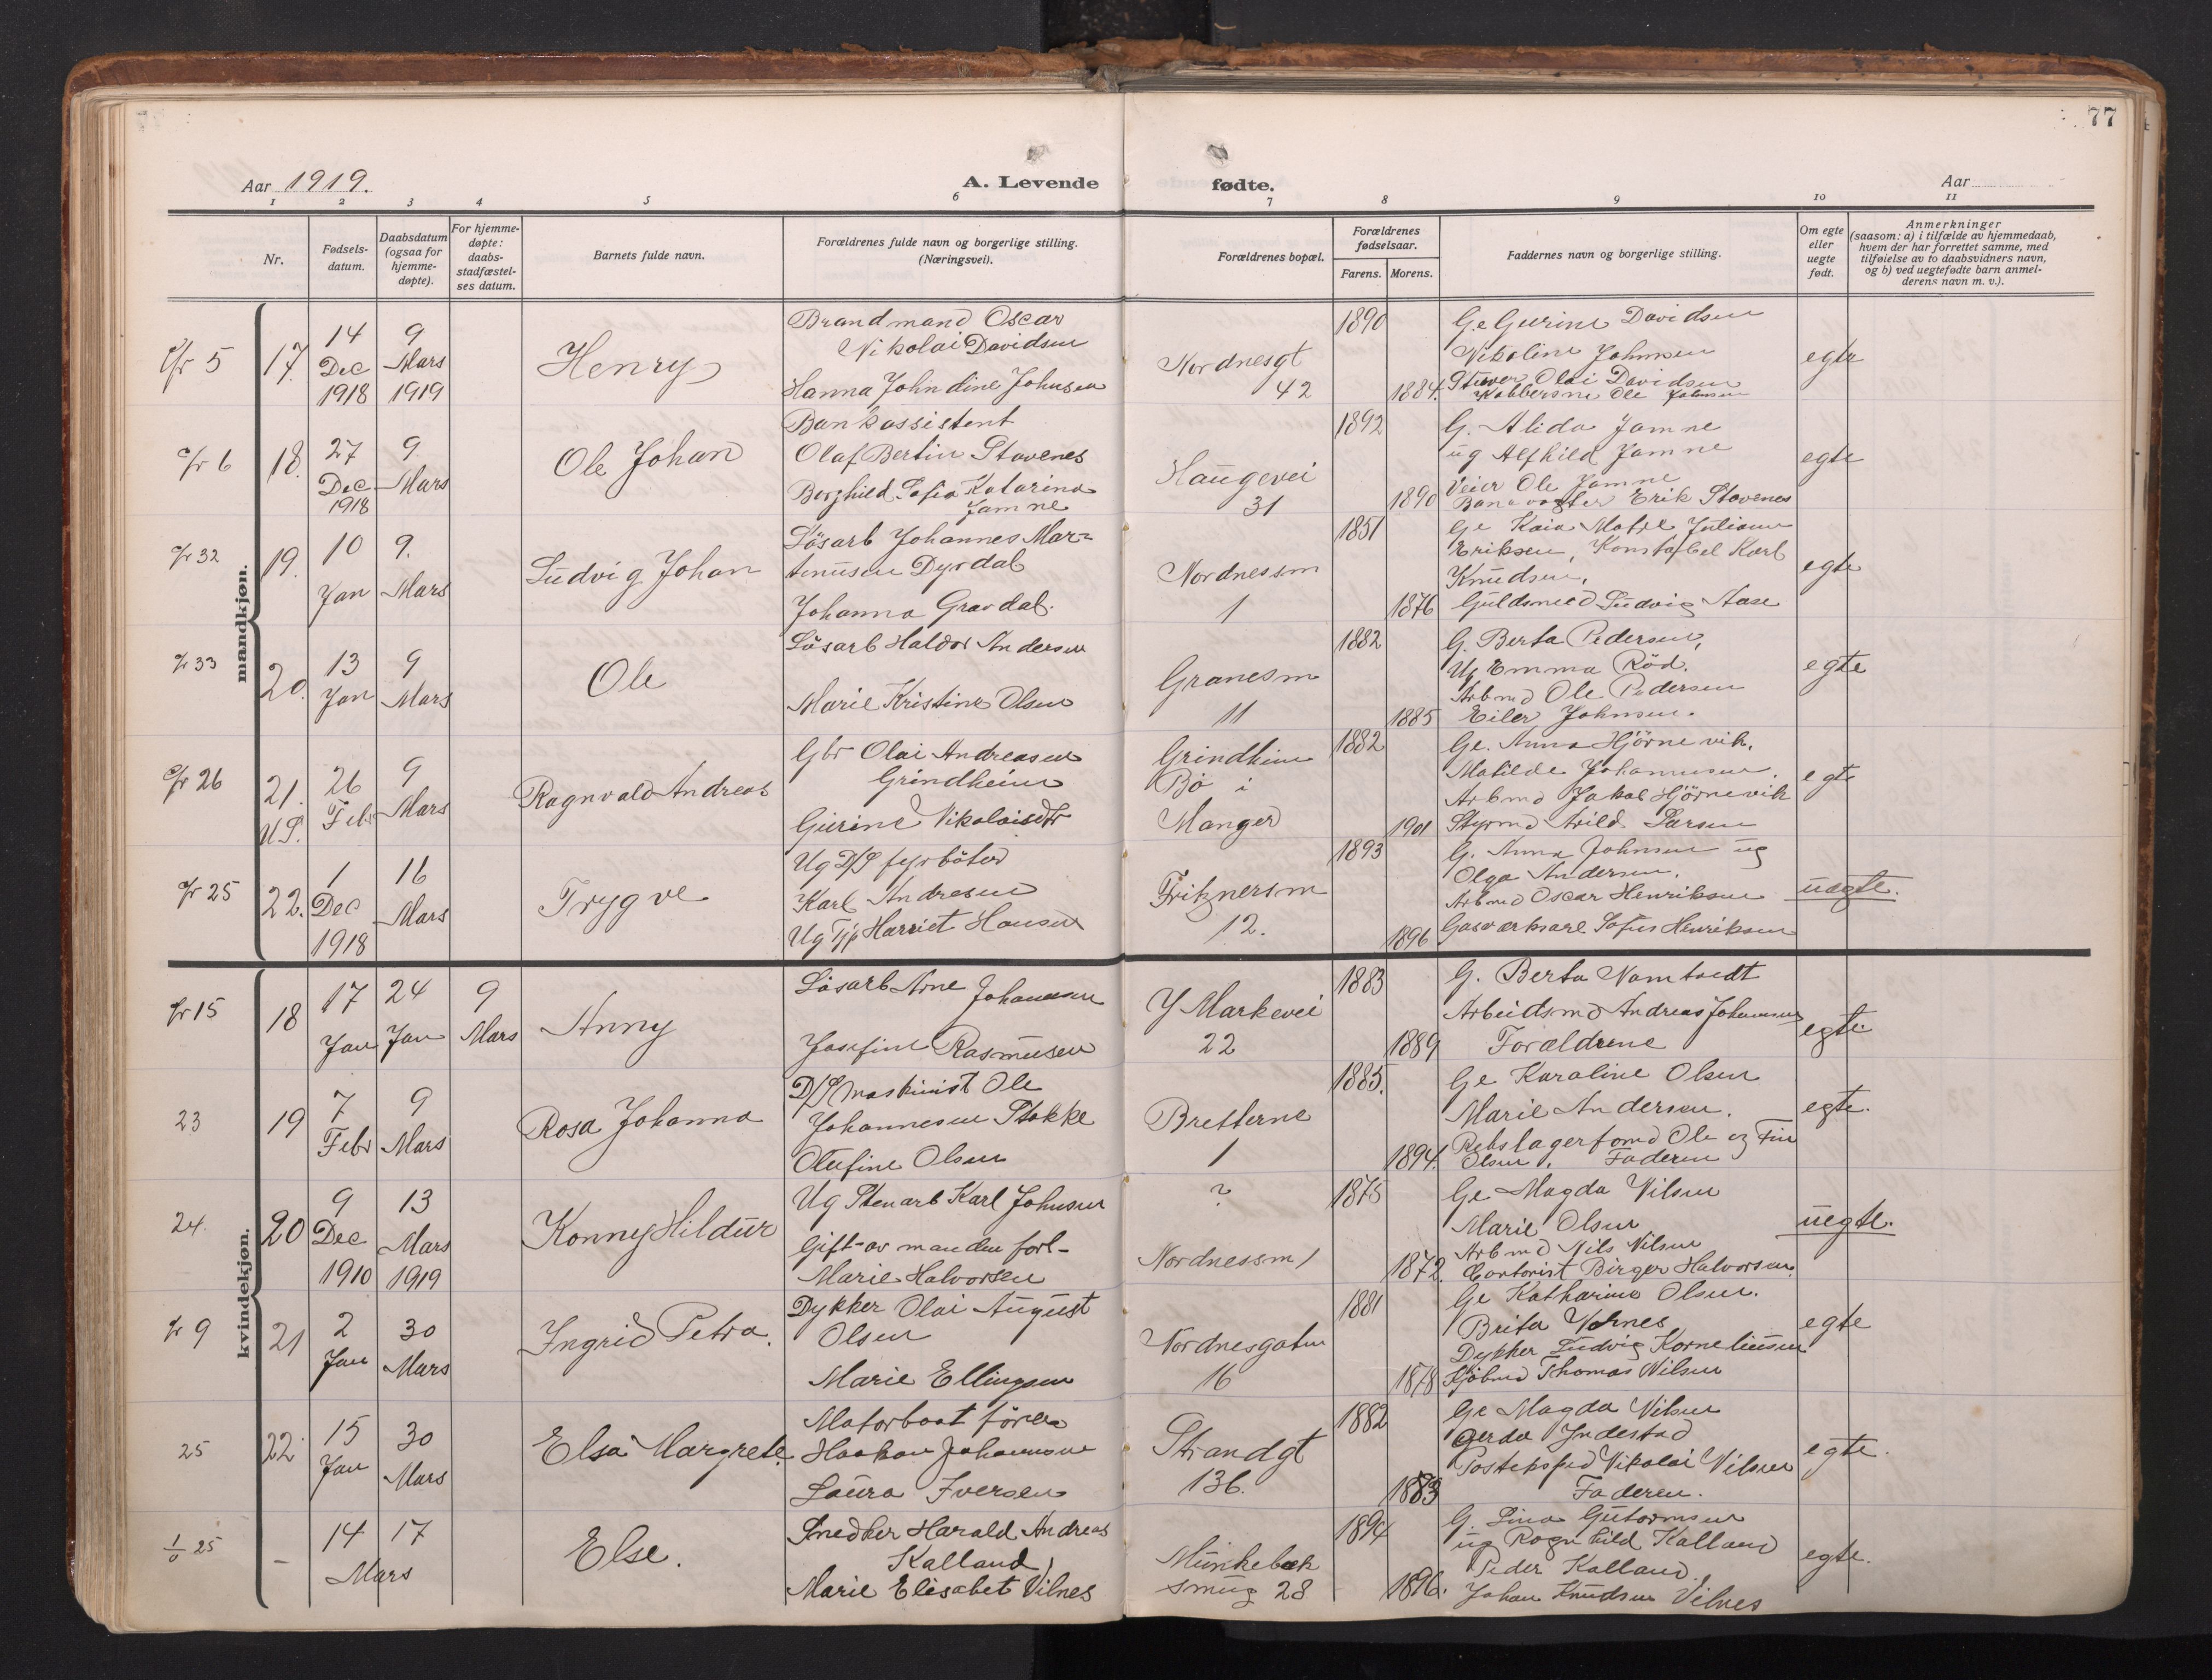 77
Aar 1919.
A. Levende fødte.
Aar
1 2 3 4 5 6 7 8 9 10 11
Nr.
Fødsels-
datum.
Daabsdatum
(ogsaa for
hjemme-
døpte).
For hjemme-
døpte:
daabs-
stadfæstel-
ses datum.
Barnets fulde navn.
Forældrenes fulde navn og borgerlige stilling.
(Næringsvei).
Forældrenes bopæl.
Forældrenes
fødselsaar.
Farens. Morens.
Faddernes navn og borgerlige stilling.
Om egte
eller
uegte
født.
Anmerkninger
(saasom: a) i tilfælde av hjemmedaab,
hvem der har forrettet samme, med
tilføielse av to daabsvidners navn,
og b) ved uegtefødte barn anmel-
derens navn m. v.).
mandkjøn.
5
17.
14
Dec
1918
9
Mars
1919
Henry
Brandmand Oscar
Nikolai Davidsen
Hanna Johndine Johnsen
Nordnesgt
42
1890
1884.
Ge Gurine Davidsen
Nikoline Johnsen
Stuver Olai Davidsen
Kobbersm Ole Johnsen
egte
6
18.
27
Dec
1918
9
Mars
Ole Johan
Bankassistent
Olaf Bertin Stavenes
Borghild Sofia Katarina
Jamne
Haugevei
31
1892
1890
G. Alida Jamne
ug Alfhild Jamne
Veier Ole Jamne
Banevogter Erik Stavenes
egte
32
19.
10
Jan
9.
Mars
Ludvig Johan
Lösarb Johannes Mar-
tinusen Dyrdal
Johanna Gravdal.
Nordnessm
1
1851
1876
Ge Kaia Matre Juliane
Eriksen, Konstabel Karl
Knudsen,
Guldsmed Ludvig Aase
egte
33
20.
13
Jan
9
Mars
Ole
Lösarb Haldor Andersen
Marie Kristine Olsen
Granesm
11
1882
1885
G. Berta Pedersen,
Ug Emma Röd.
Arbmd Ole Pedersen
Eiler Johnsen.
egte
26
21.
U.S.
26
Feb
9
Mars
Ragnvald Andreas
Gbr Olai Andreasen
Grindheim
Gurine Nikolaisdtr
Grindheim
Bö i
Manger
1882
1901
Ge. Anna Hjörnevik.
Matilde Johannesen.
Arbmd Jakob Hjörnevik
Styrmd Arild Larsen
egte
25
22.
1
Dec
1918
16
Mars
Trygve
Ug D/S fyrböter
Karl Andresen
Ug Tjp Harriet Hansen
Friknersm
12.
1893
1896
G. Anna Johnsen ug
Olga Andersen.
Arbmd Oscar Henriksen
Gasværksarb Sofus Henriksen
uegte.
kvindekjøn.
15
18
17
Jan
24
Jan
9
Mars
Anny
Lösarb Arne Johannesen
Josefine Rasmussen
Y Markevei
22
1883
1889
G. Berta Namtvedt
Arbeidsmd Andreas Johannesen
Forældrene
egte
23
19
7
Febr
9
Mars
Rosa Johanna
D/S maskinist Ole
Johannesen Stokke
Olufine Olsen
Bretterne
1
1885.
1894.
Ge Karoline Olsen
Marie Andersen.
Rebslagerfomd Ole og Fin
Olsen. Faderen
egte.
24.
20
9
Dec
1910
13
Mars
1919
Konny Hildur
Ug Stenarb Karl Johnsen
Gift- av manden forl-
Marie Halvorsen
?
Nordnessm 1
1875
1872.
Ge Magda Nilsen
Marie Olsen
Arbmd Nils Nilsen
Contorist Birger Halvorsen.
uegte.
9
21
2
Jan
30
Mars
Ingrid Petra.
Dykker Olai August
Olsen
Marie Ellingsen
Nordnesgaten
16
1881
1878
Ge Katharine Olsen.
Brita Vernes
Dykker Ludvig Korneliusen
Sjöbmd Thomas Nilsen
egte
25
22
15
Jan
30
Mars
Elsa Margrete.
Motorbaat förer
Haakon Johannesen
Laura Iversen
Strandgt
136.
1882
1883
Ge Magda Nilsen
Gerda Indestad
Posteksped Nikolai Nilsen
Faderen.
egte.
25
-
14 17
Mars
Else.
Snedker Harald Andreas
Kalland
Marie Elisabet Vilnes
Munkebæk
smug 28
1894
1896.
G. Lina Gutormsen
ug Ragnhild Kalland
Peder Kalland.
Johan Knudsen Vilnes
egte.